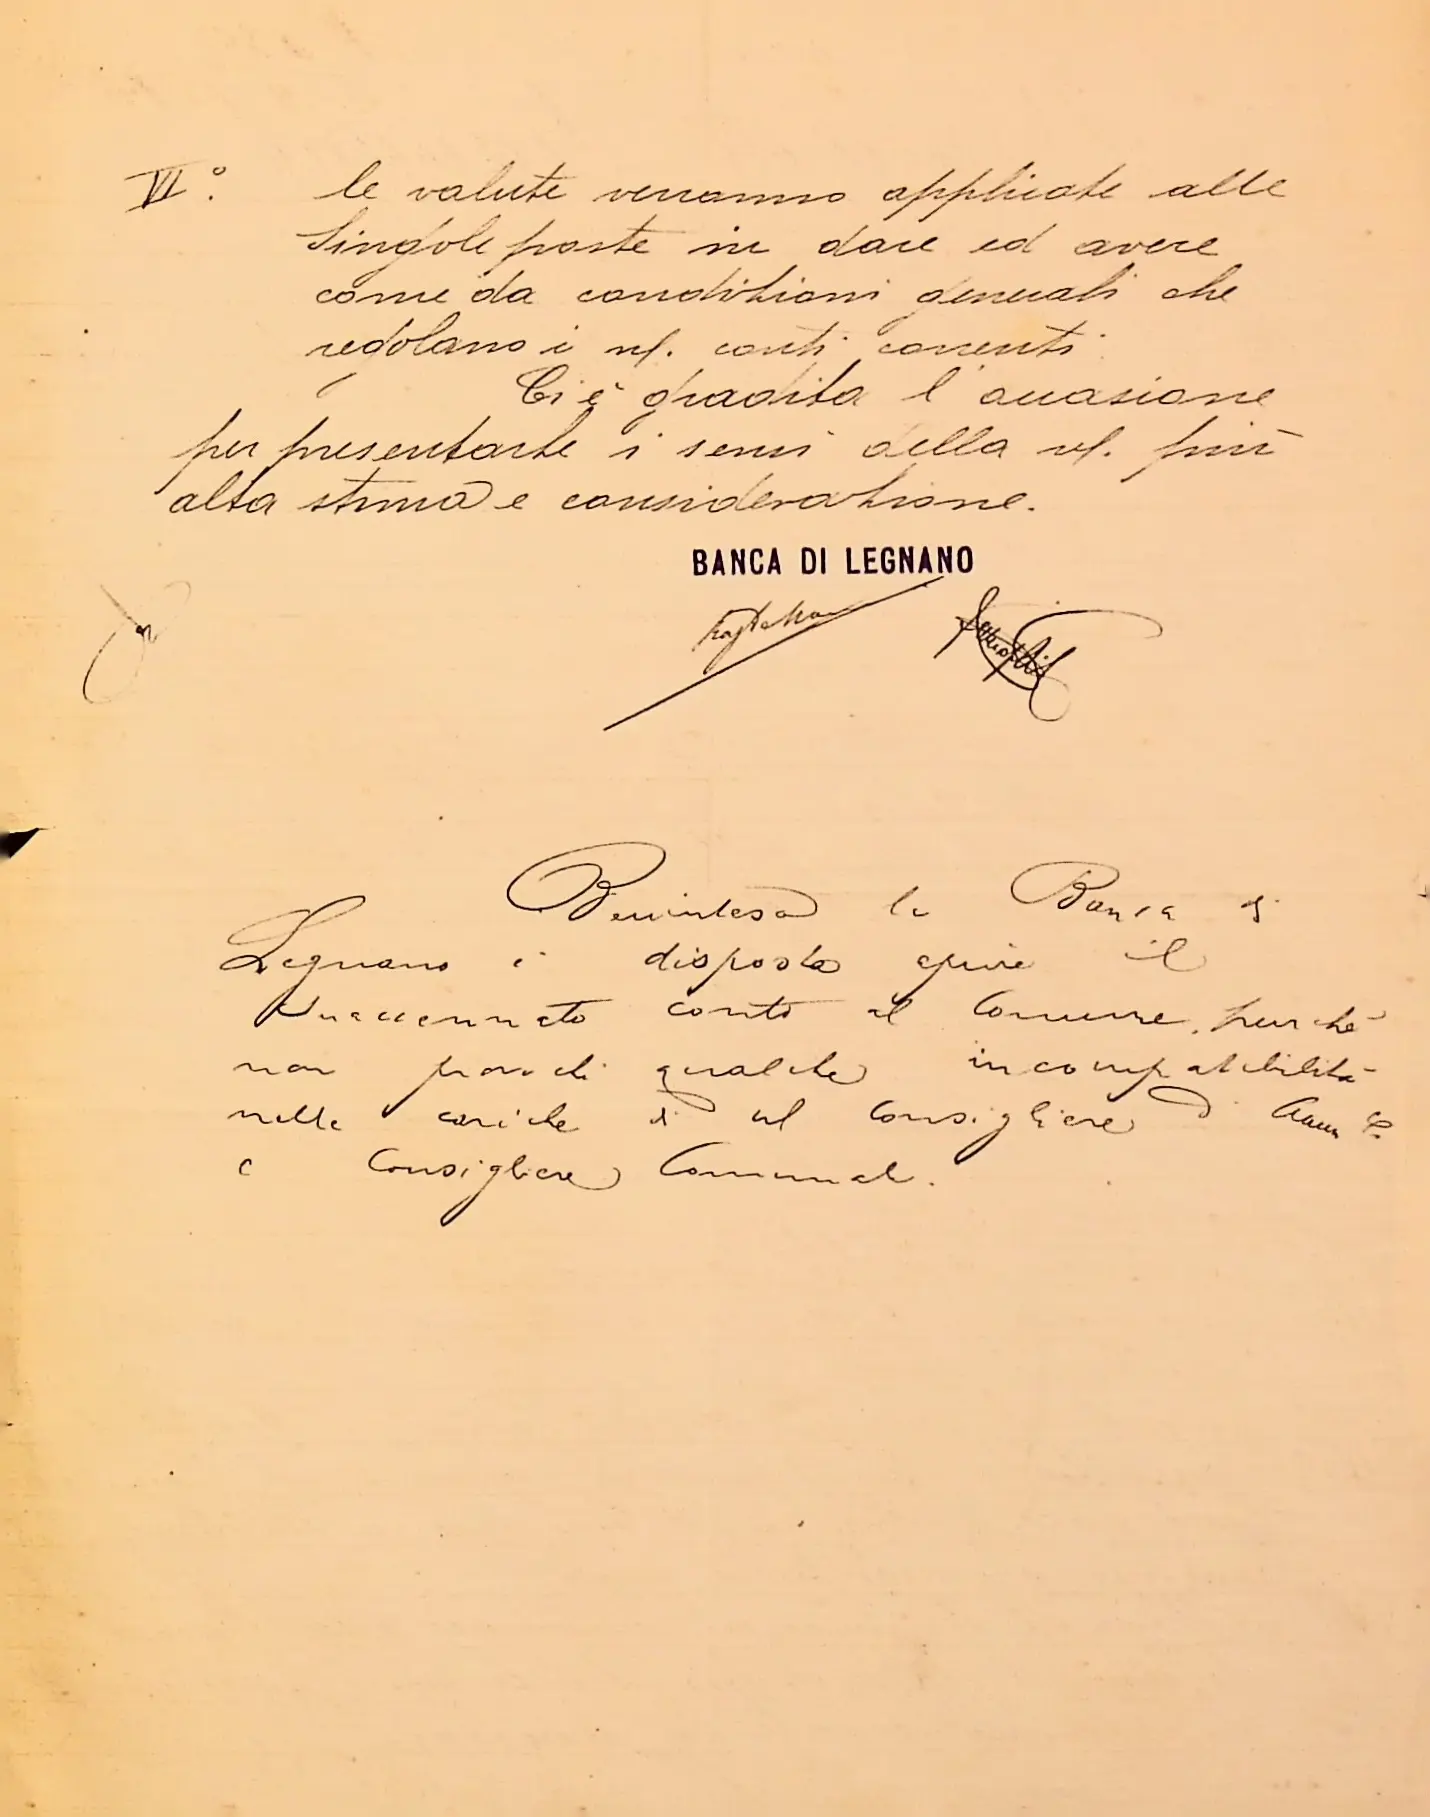 VI°. le valute verranno applicate alle
singole poste in dare ed avere
come da condizioni generali che
regolano i ns/. conti correnti.
Ci è gradita l'occasione
per presentarle i sensi della ns/. più
alta stima e considerazione.
BANCA DI LEGNANO
Beninteso la Banca di
Legnano è disposta aprire il
suaccennato conto al Comune, purchè
non provochi qualche incompatibilità
nelle cariche di un Consigliere di Amm.
e Consigliere Comunale.